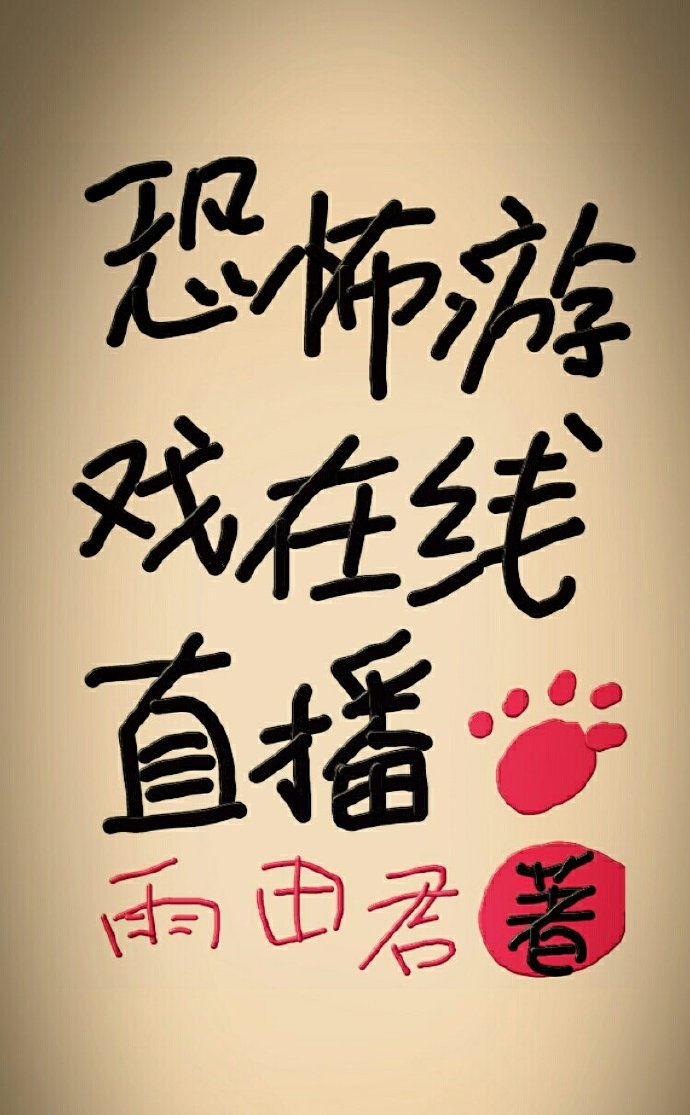 恐怖游
戏在线
直播
雨田君 著